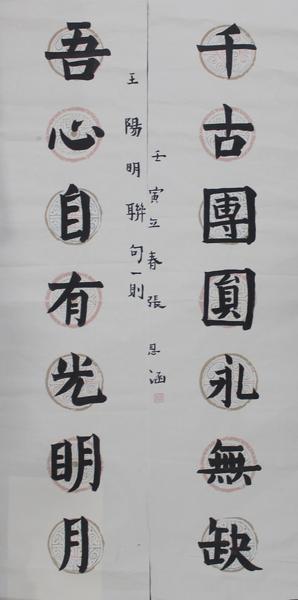 吾心自有光眀月
王陽明聯句一則
千古團圓永無缺
壬寅立春張恩涵